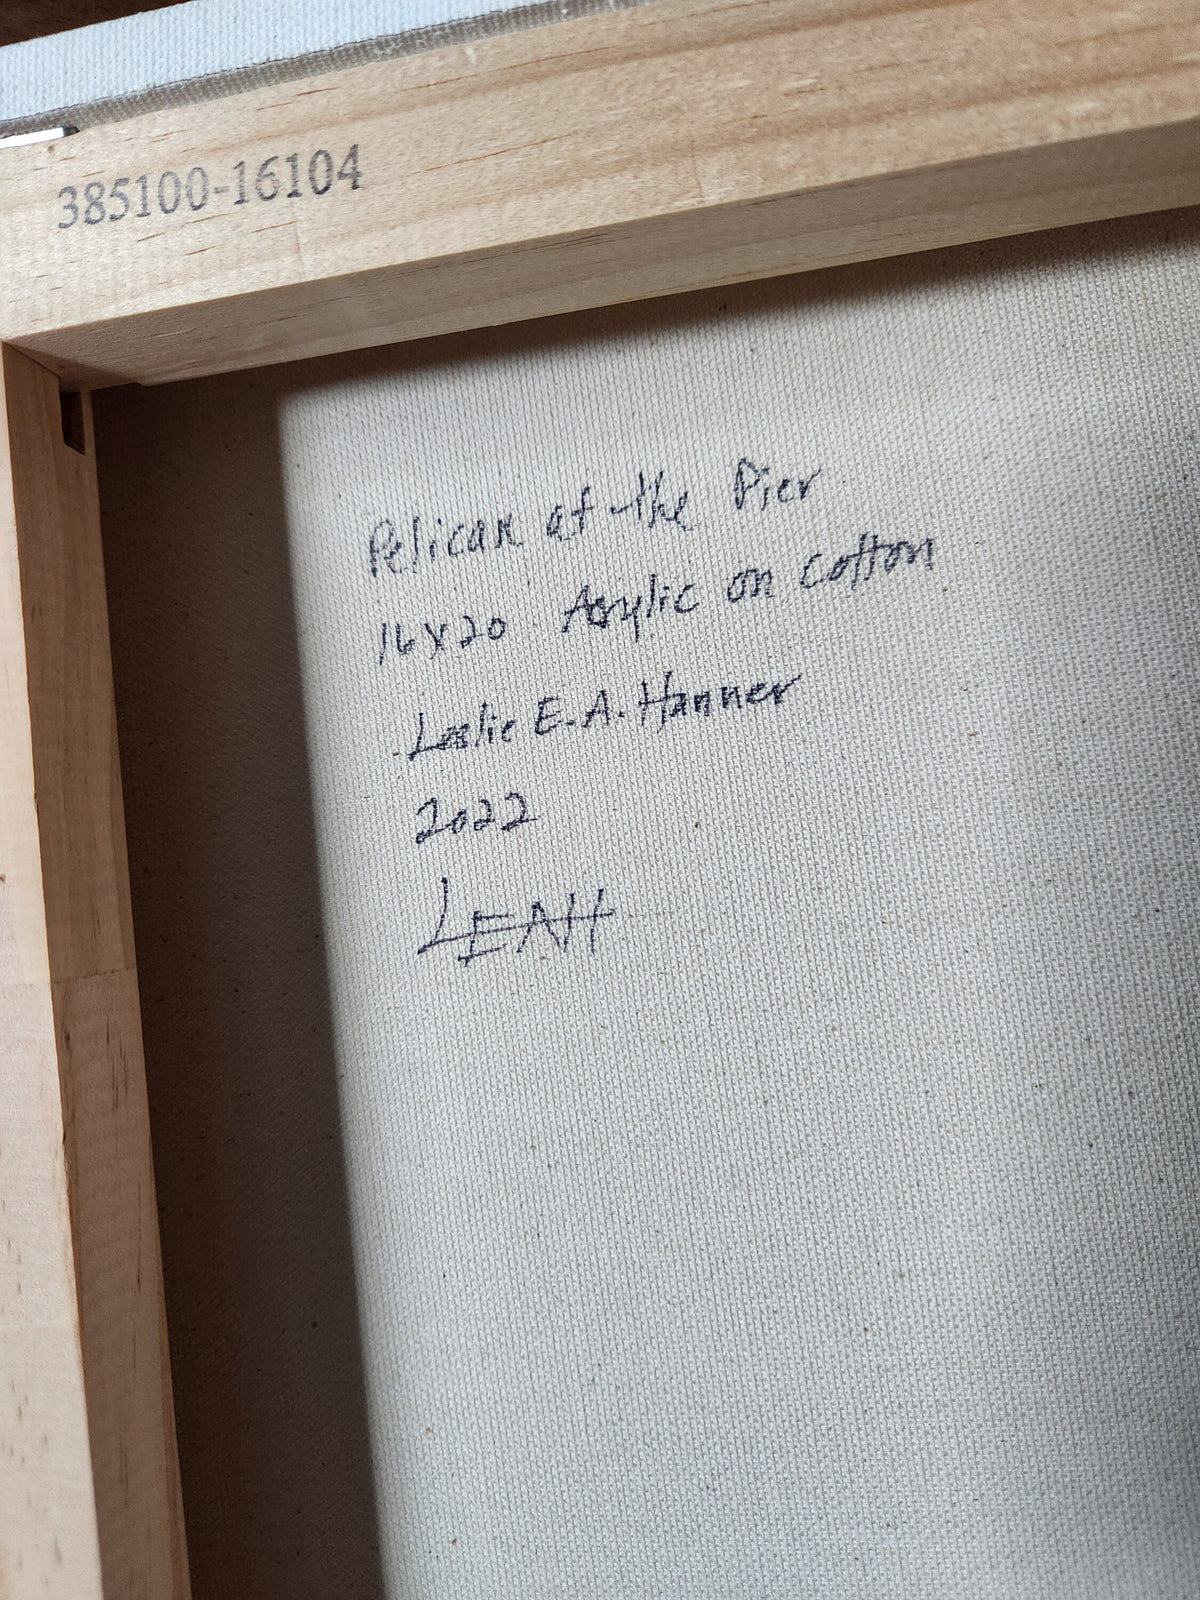 385100-16104
Pelican at the Pier
16x20 Acrylic on cotton
Leslie E.A. Hanner
2022
LEAH